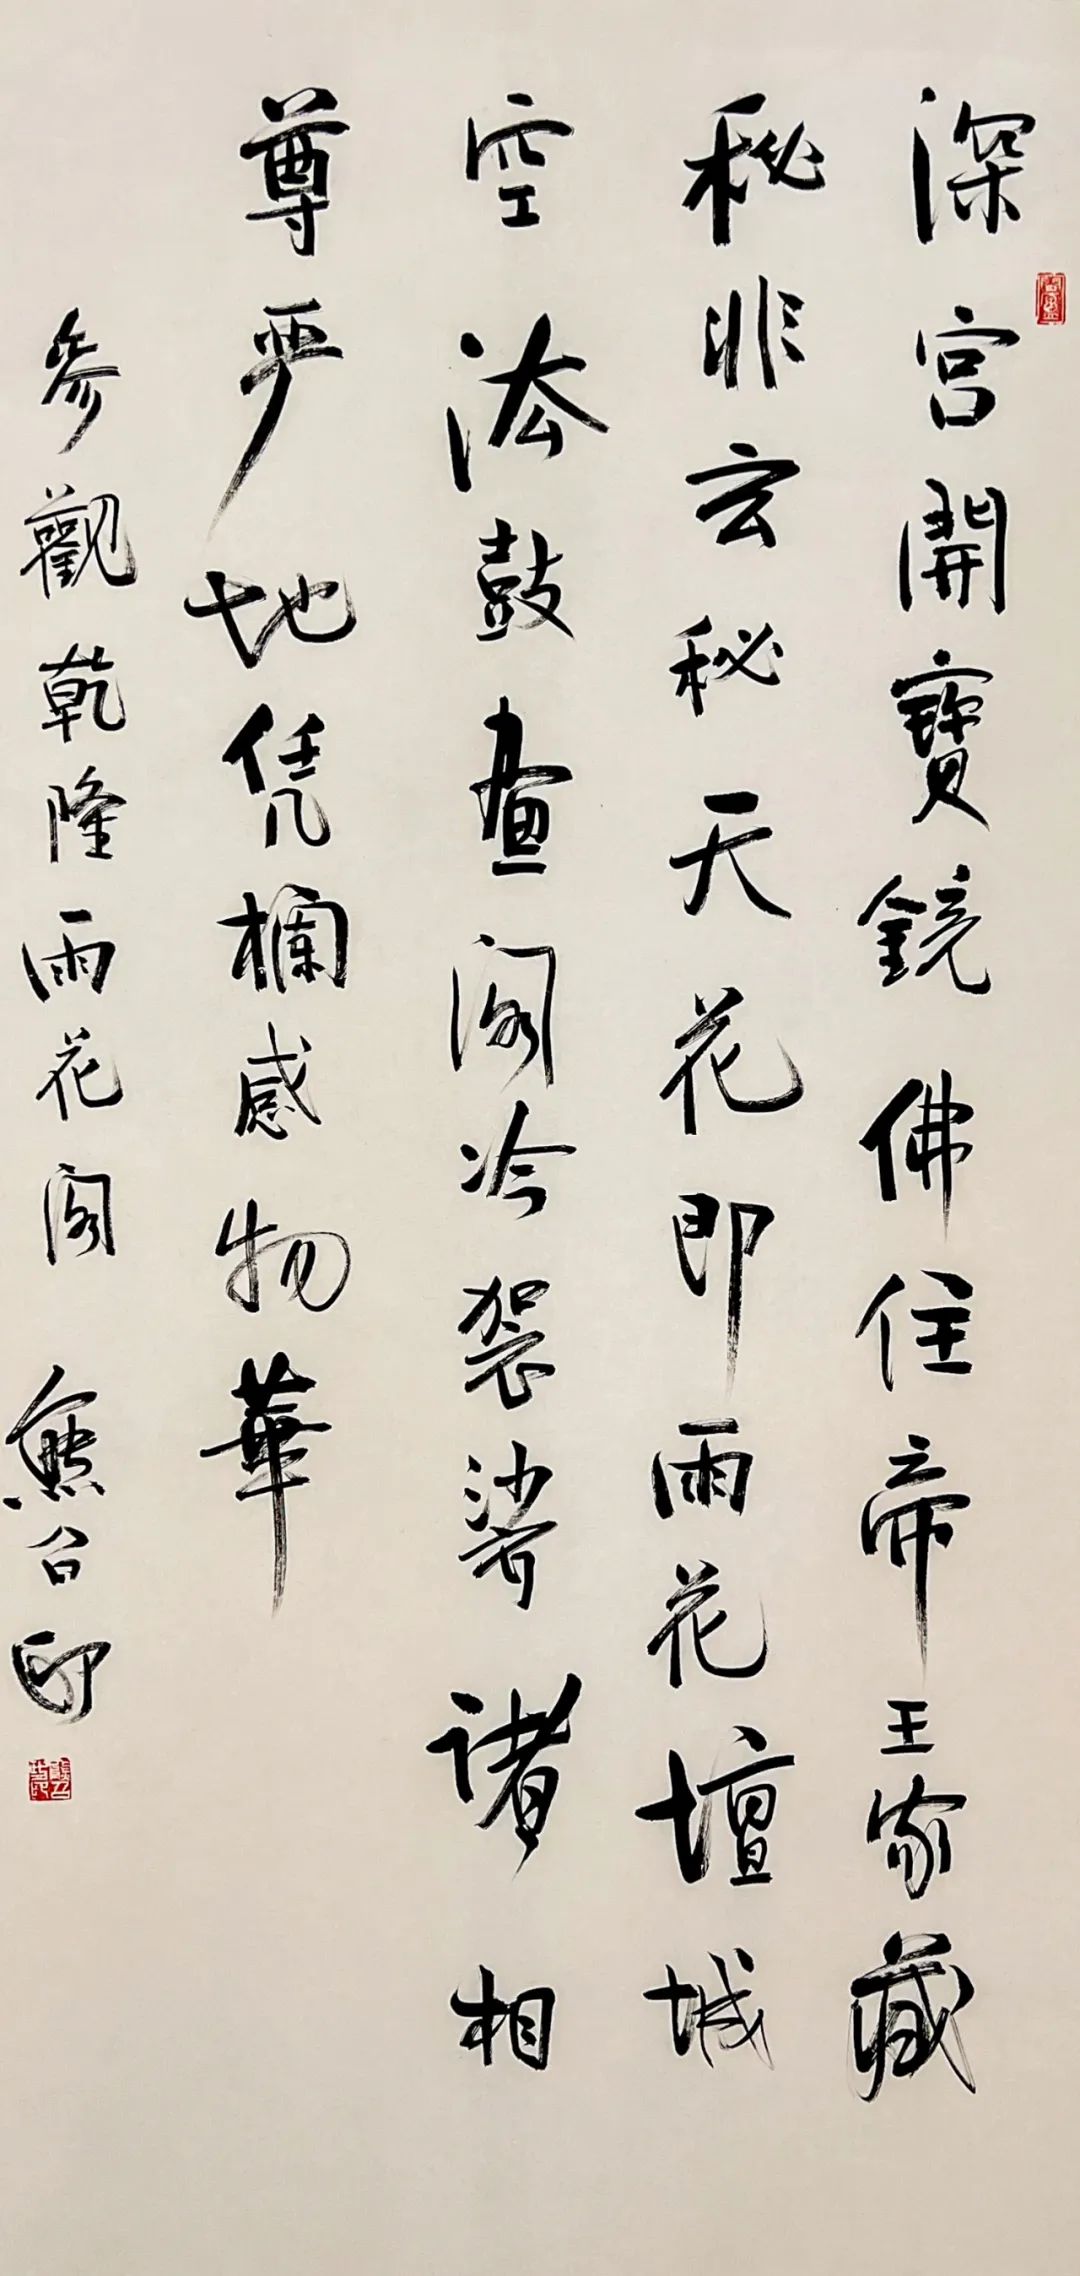 深宮開寶鏡佛住帝王家藏
秘非玄秘天花即雨花壇城
空法鼓畫阁冷袈裟諸相
尊严地凭欄感物華
參觀乾隆雨花阁 熊召政